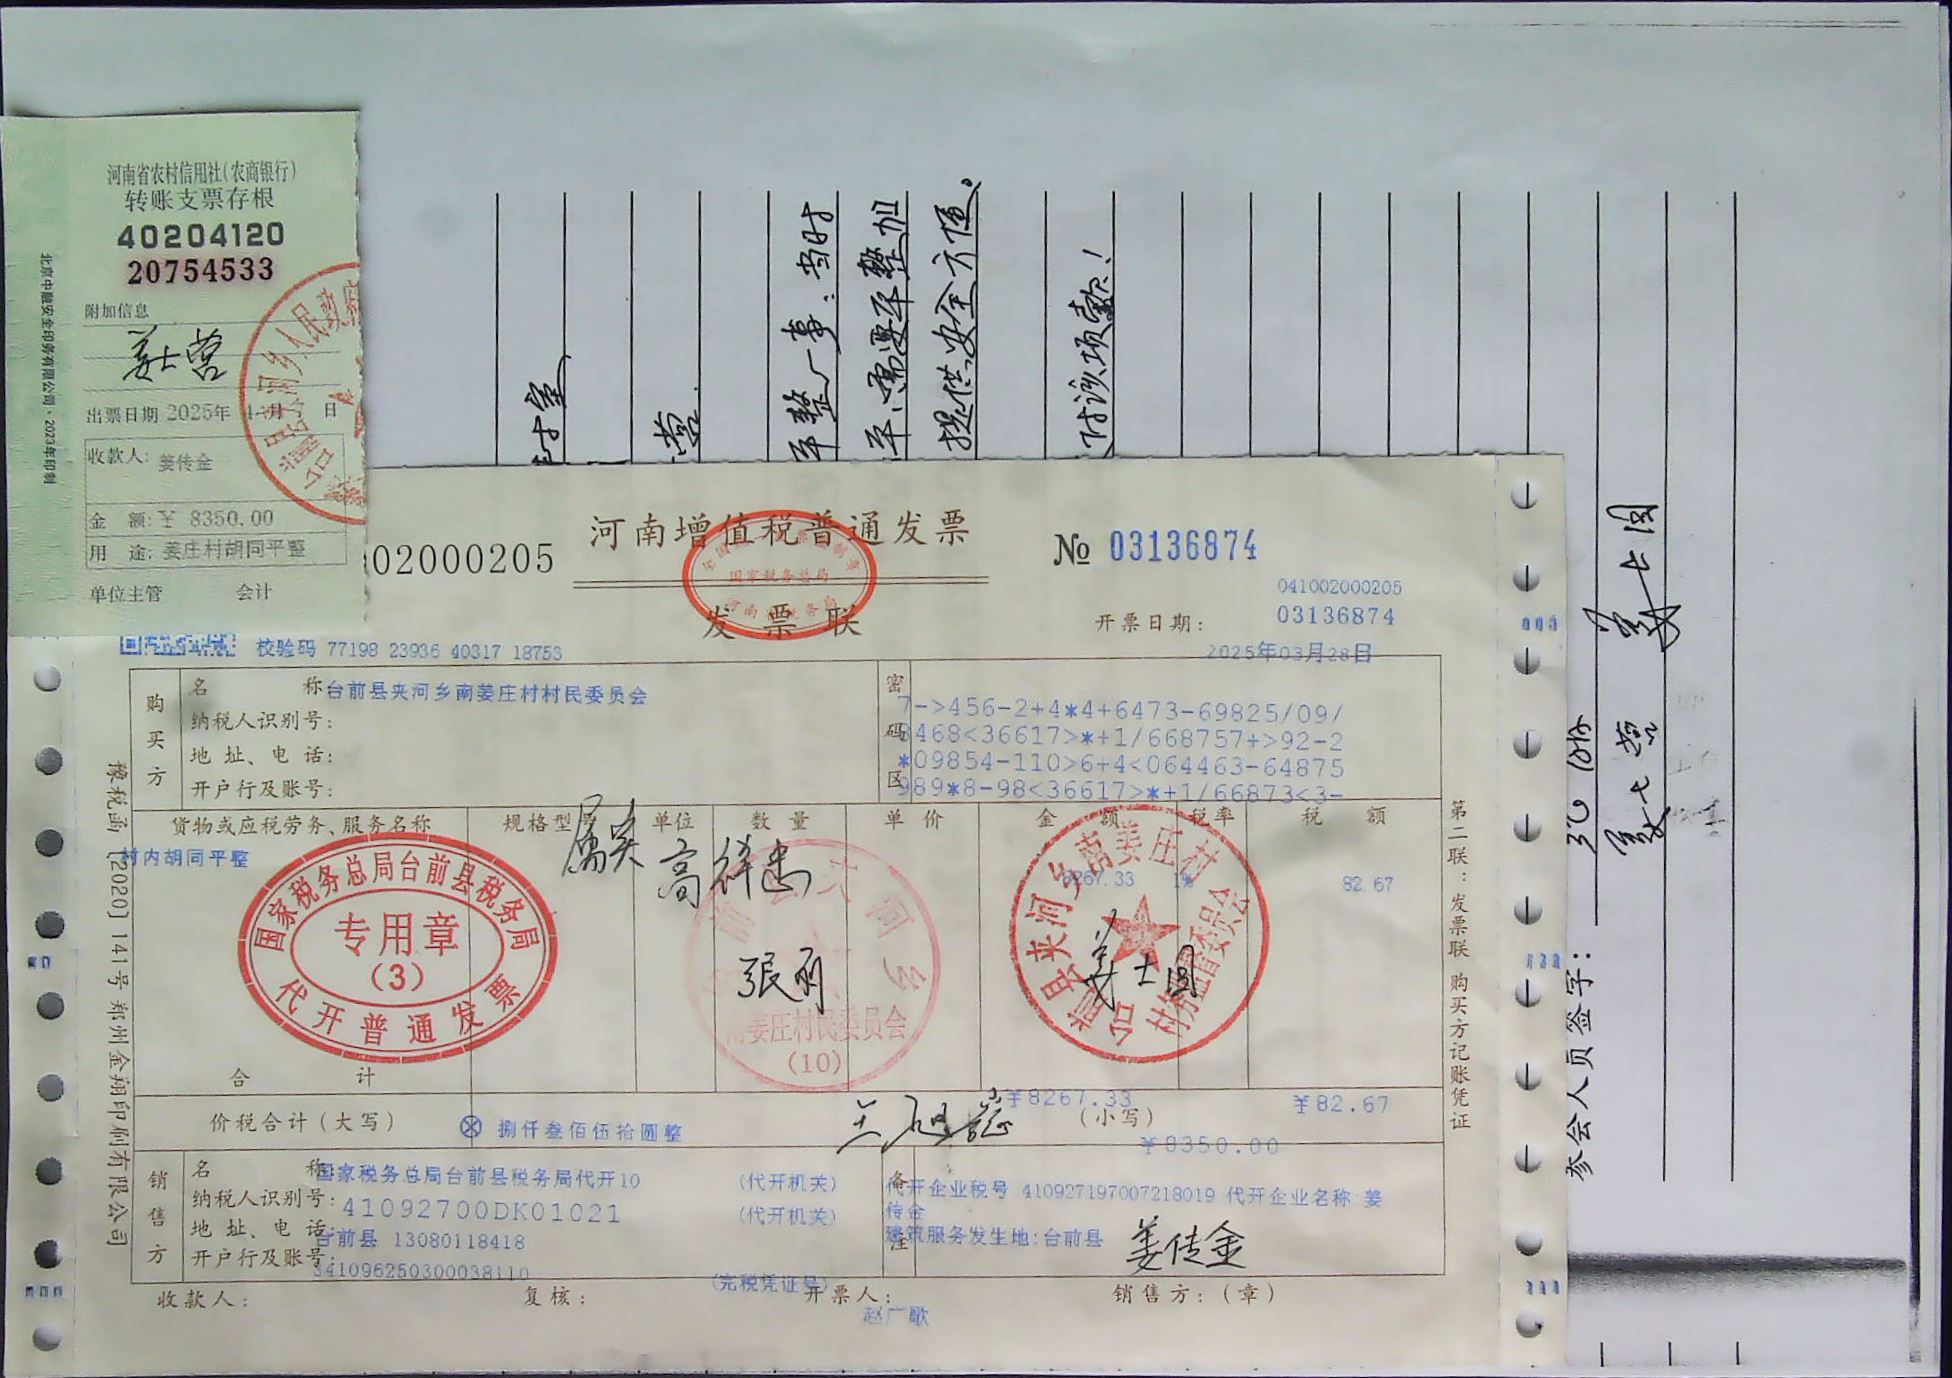 河南省农村信用社(农商银行)
转账支票存根
40204120
20754533
附加信息
姜士营
出票日期 2025年 4 月 日
收款人: 姜传金
金 额: ¥ 8350.00
用 途: 姜庄村胡同平整
单位主管 会计
北京中融安全印务有限公司·2023年印制
02000205
河南增值税普通发票
国家税务总局
发票联
№ 03136874
041002000205
03136874
开票日期: 2025年03月28日
校验码 77198 23936 40317 18753
购买方
名 称 台前县夹河乡南姜庄村村民委员会
纳税人识别号:
地 址、电 话:
开户行及账号:
密码区
7->456-2+4*4+6473-69825/09/
8468<36617>*+1/668757+>92-2
*09854-110>6+4<064463-64875
989*8-98<36617>*+1/66873<3-
货物或应税劳务、服务名称 规格型 单位 数 量 单 价 金 额 税率 税 额
村内胡同平整 8267.33 1% 82.67
属实 高祥忠
国家税务总局台前县税务局
专用章
(3)
代开普通发票
张雨
南姜庄村民委员会
(10)
台前县夹河乡南姜庄村
村务监督委员会
姜士国
合 计 ¥8267.33 ¥82.67
价税合计(大写) ⊗ 捌仟叁佰伍拾圆整 (小写) ¥8350.00
销售方
名 称 国家税务总局台前县税务局代开10 (代开机关)
纳税人识别号: 41092700DK01021 (代开机关)
地 址、电 话: 台前县 13080118418
开户行及账号: 341096250300038110 (完税凭证号)
备注
代开企业税号 410927197007218019 代开企业名称 姜
传金
建筑服务发生地: 台前县
姜传金
收款人: 复核: 开票人: 赵广歌 销售方: (章)
豫税函 [2020] 141号 郑州金翔印刷有限公司
第二联: 发票联 购买方记账凭证
平整一事:当时
平,需要平整加
提供安全方便。
对该项款!
参会人员签字:
姜士国